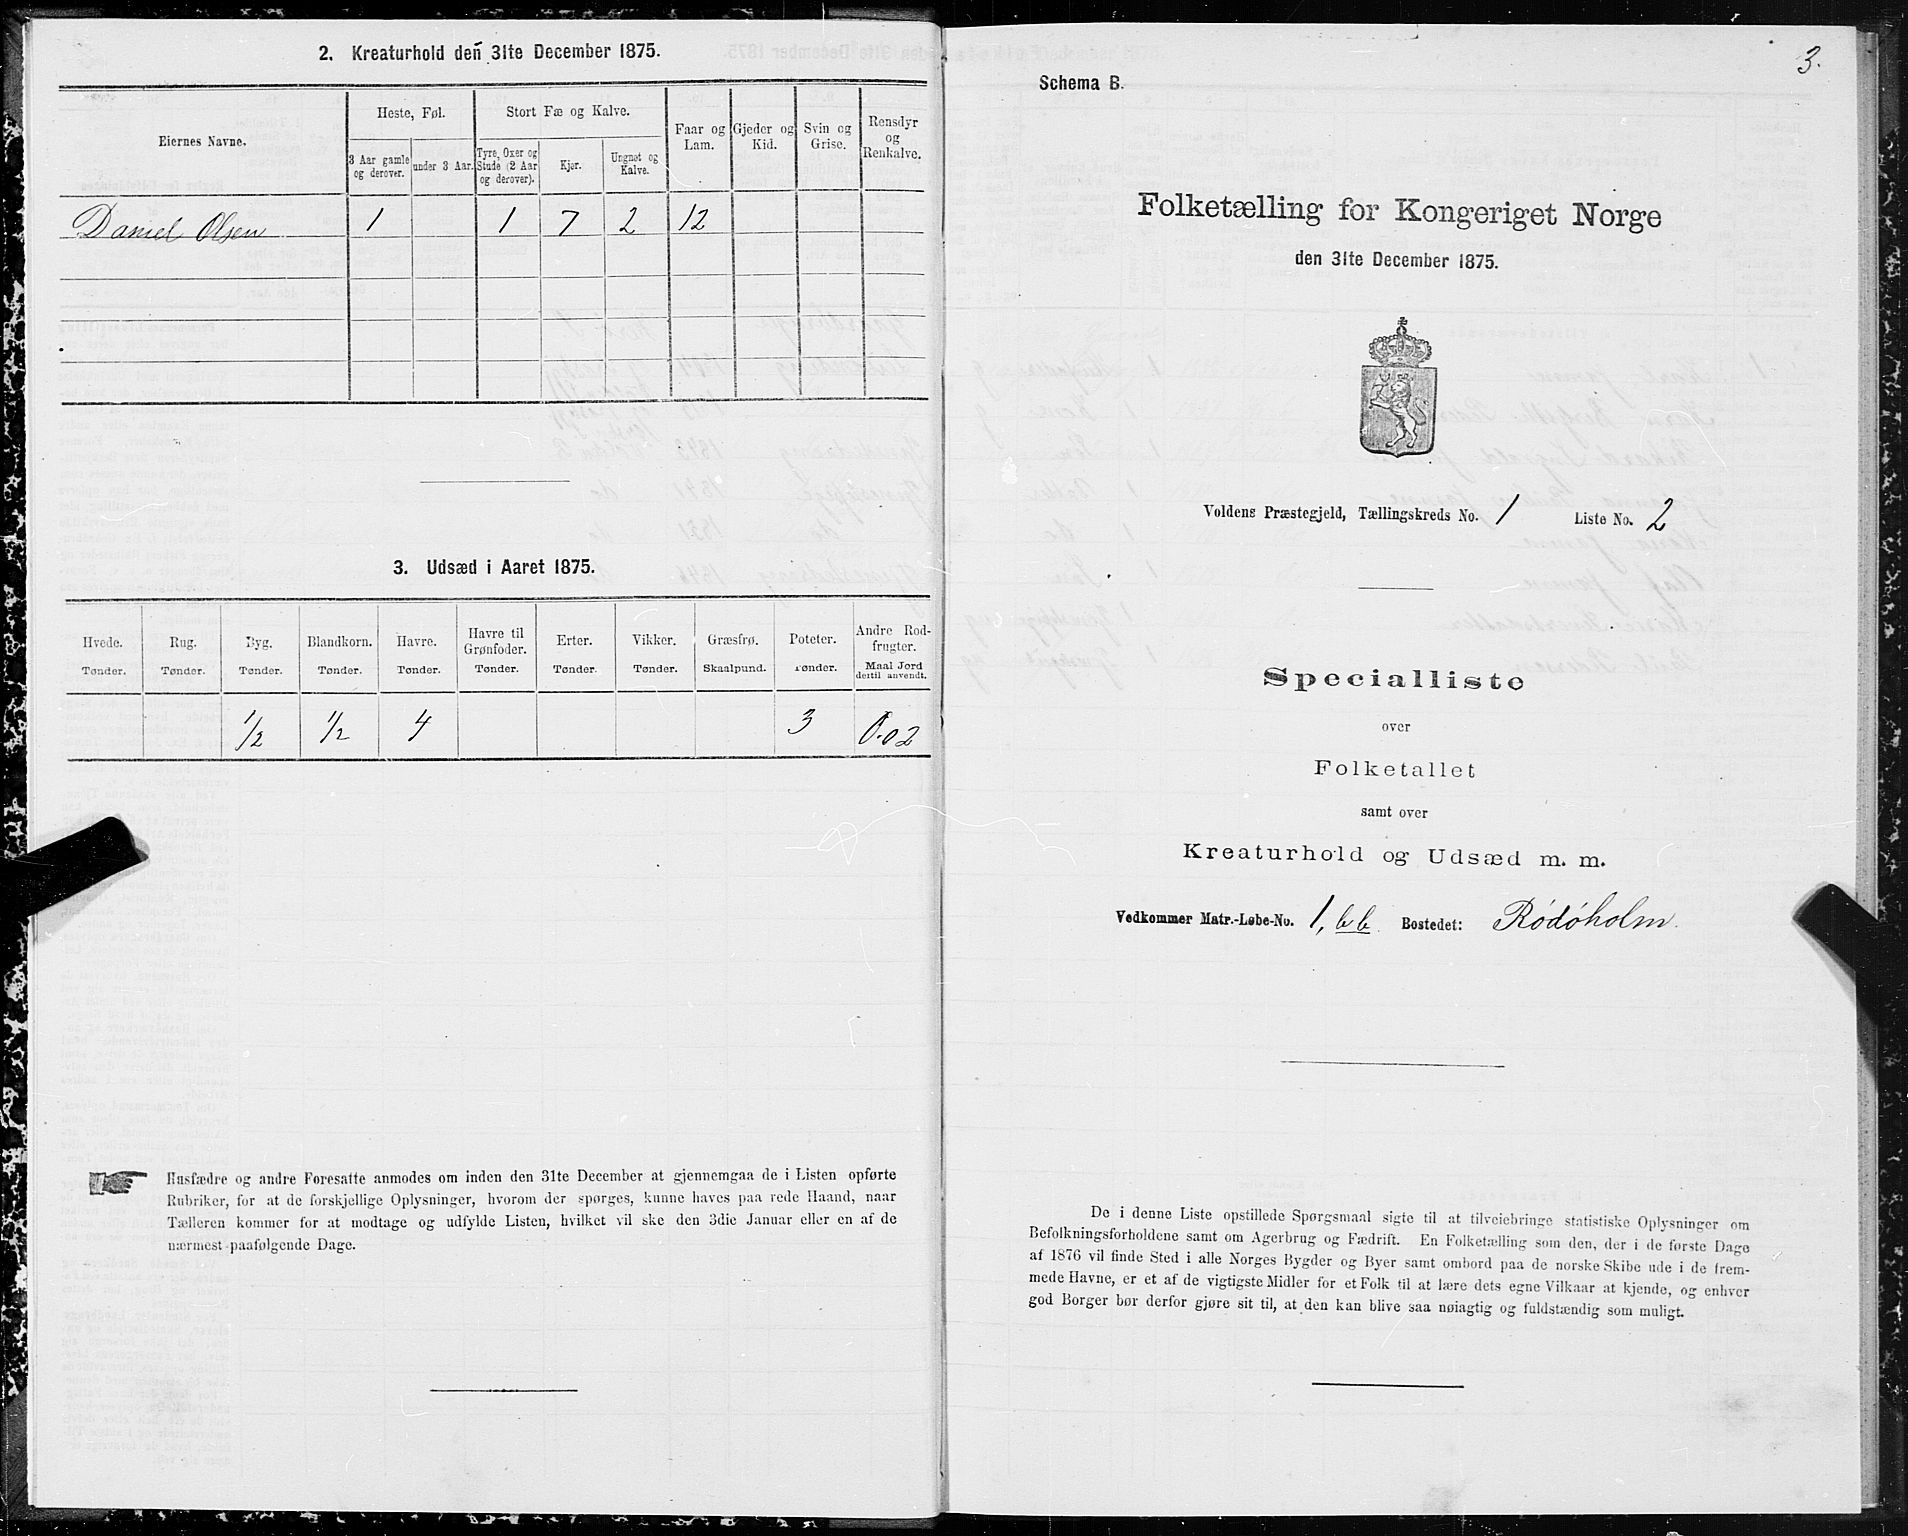 2. Kreaturhold den 31te December 1875.
Eiernes Navne.
Heste, Føl.
3 Aar gamle og derover.
under 3 Aar.
Stort Fæ og Kalve.
Tyre, Oxer og Stude (2 Aar og derover).
Kjør.
Ungnøt og Kalve.
Faar og Lam.
Gjeder og Kid.
Svin og Grise.
Rensdyr og Renkalve.
Daniel Olsen 1 1 7 2 12
3. Udsæd i Aaret 1875.
Hvede. Rug. Byg. Blandkorn. Havre. Havre til Grønfoder. Erter. Vikker. Græsfrø. Poteter. Andre Rodfrugter.
Tønder. Tønder. Tønder. Tønder. Tønder. Tønder. Tønder. Tønder. Skaalpund. Tønder. Maal Jord dertil anvendt.
1/2 1/2 4 3 0.02
Husfædre og andre Foresatte anmodes om inden den 31te December at gjennemgaa de i Listen opførte
Rubriker, for at de forskjellige Oplysninger, hvorom der spørges, kunne haves paa rede Haand, naar
Tælleren kommer for at modtage og udfylde Listen, hvilket vil ske den 3die Januar eller en af de
nærmest paafølgende Dage.
3.
Schema B.
Folketælling for Kongeriget Norge
den 31te December 1875.
Voldens Præstegjeld, Tællingskreds No. 1 Liste No. 2
Specialliste
over
Folketallet
samt over
Kreaturhold og Udsæd m. m.
Vedkommer Matr.-Løbe-No. 1, bb. Bostedet: Rödöholm.
De i denne Liste opstillede Spørgsmaal sigte til at tilveiebringe statistiske Oplysninger om
Befolkningsforholdene samt om Agerbrug og Fædrift. En Folketælling som den, der i de første Dage
af 1876 vil finde Sted i alle Norges Bygder og Byer samt ombord paa de norske Skibe ude i de frem-
mede Havne, er et af de vigtigste Midler for et Folk til at lære dets egne Vilkaar at kjende, og enhver
god Borger bør derfor gjøre sit til, at den kan blive saa nøiagtig og fuldstændig som muligt.